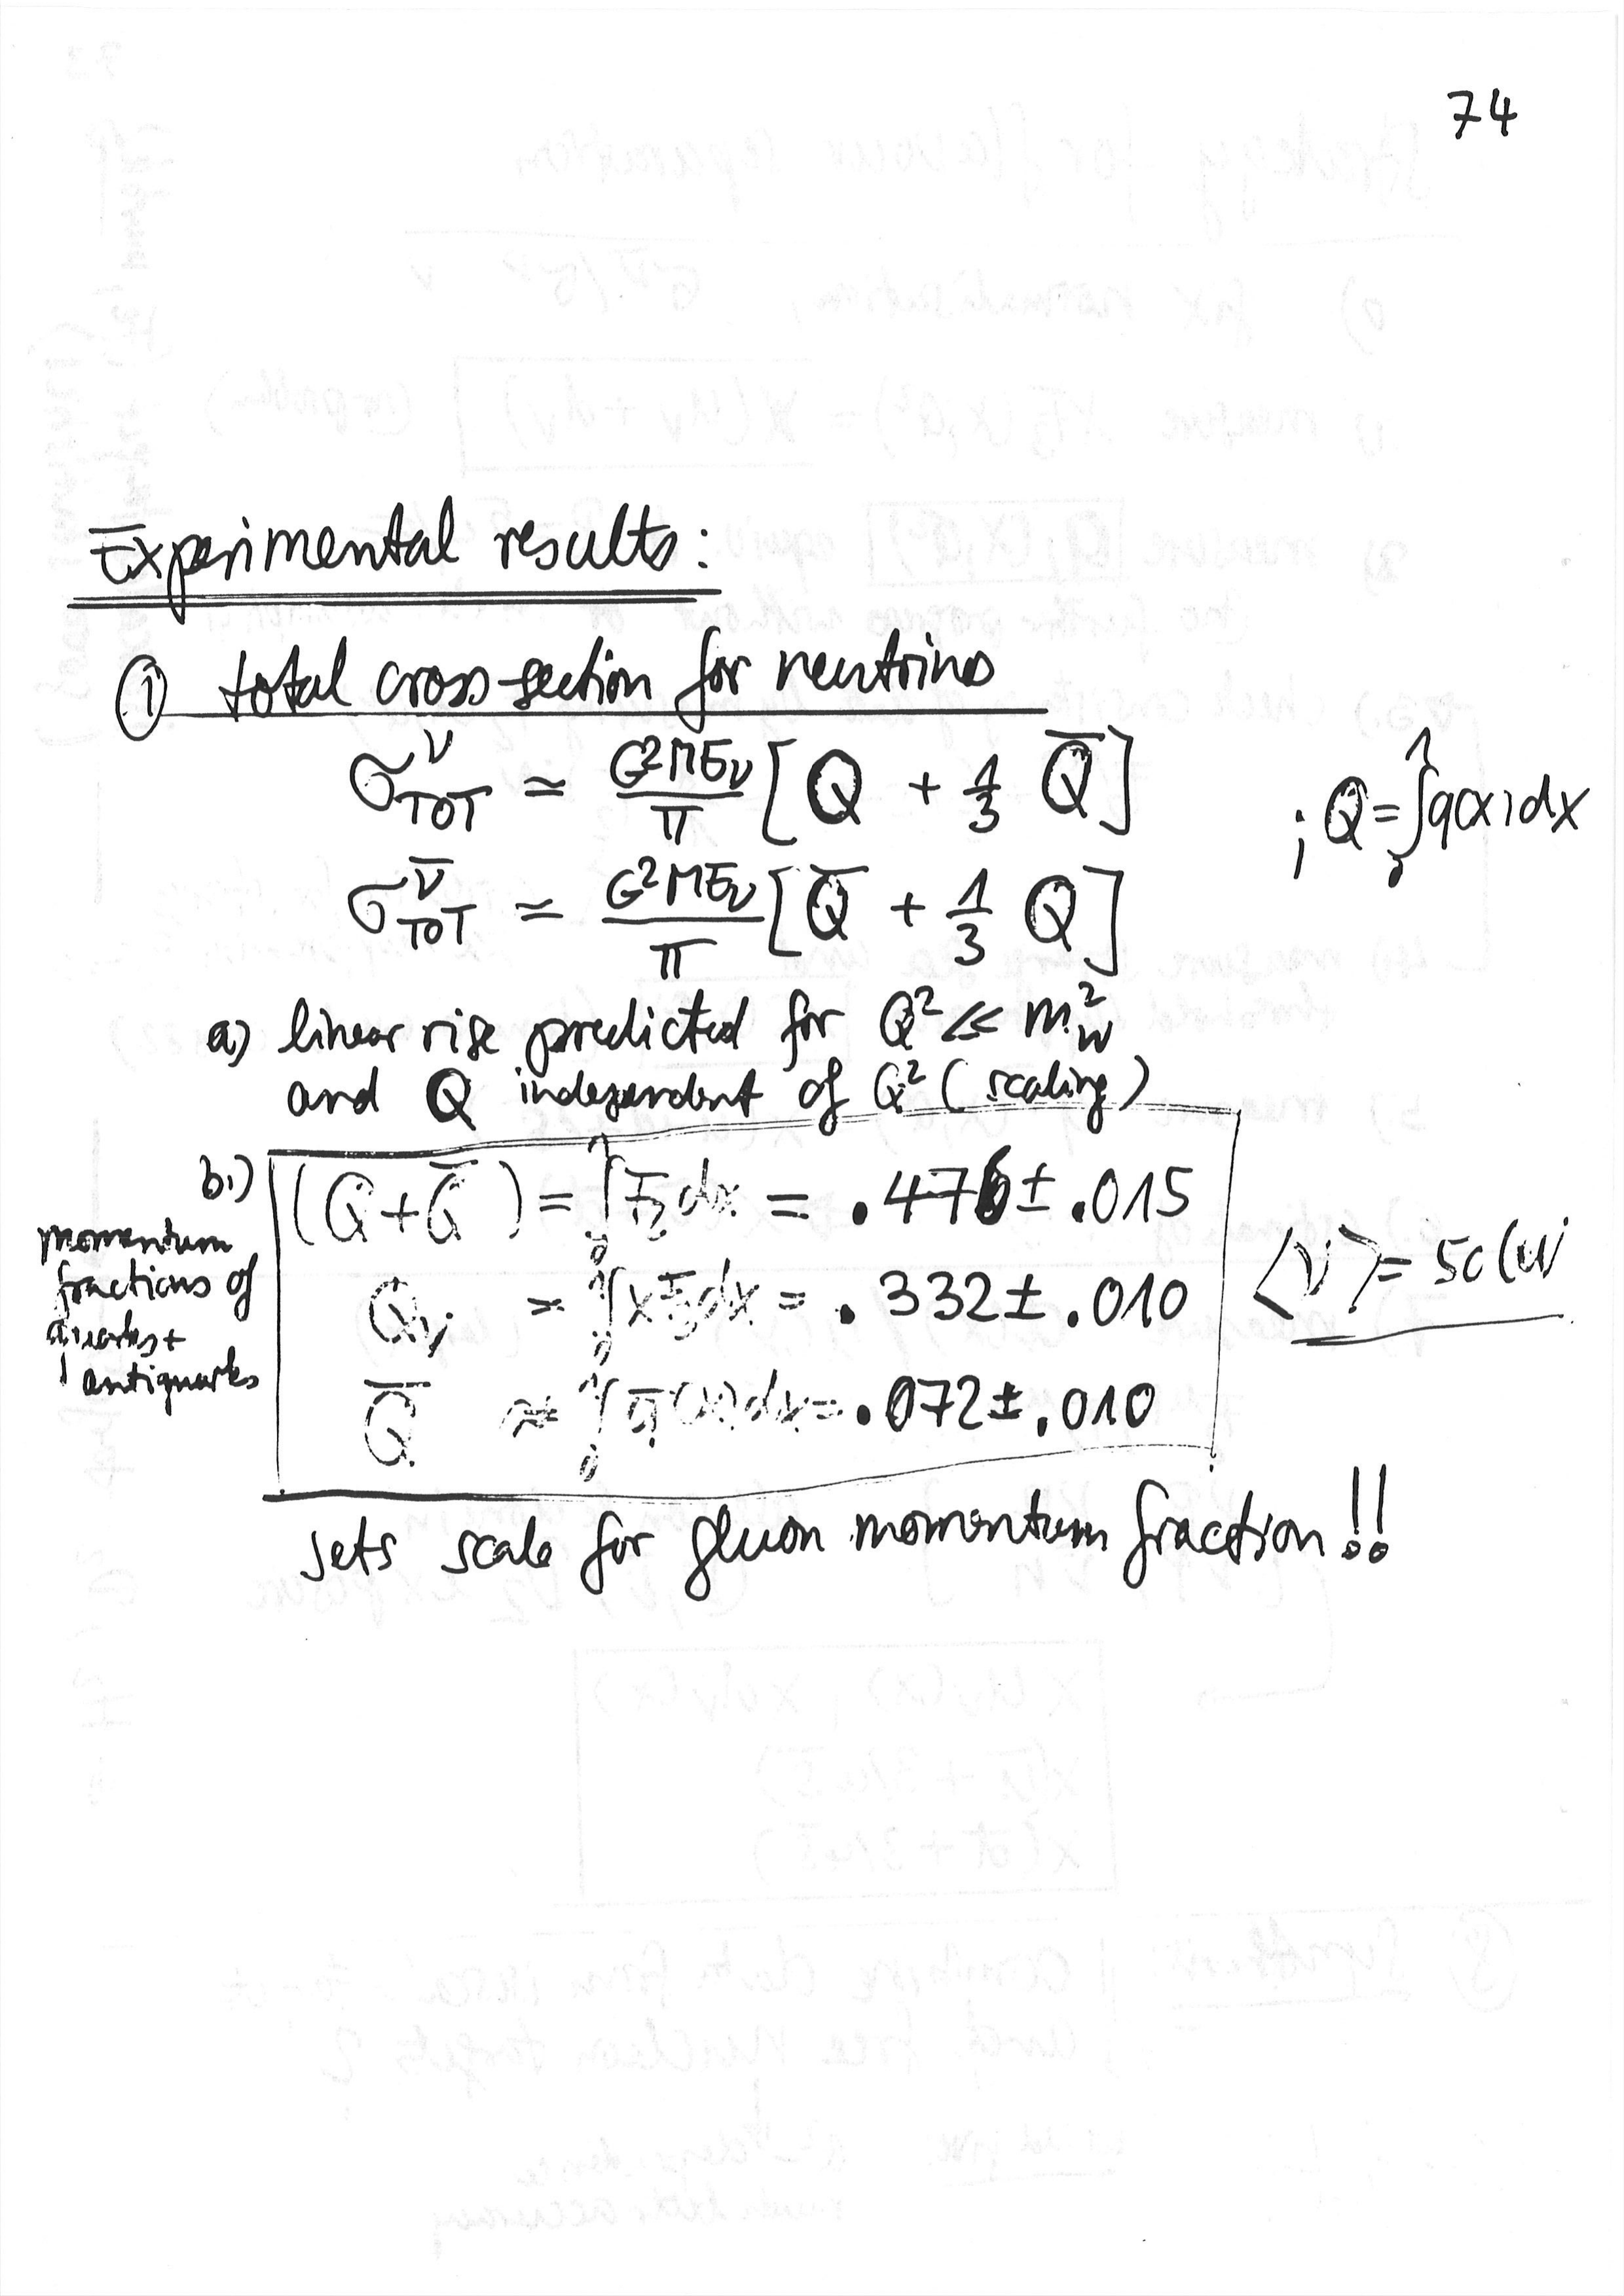 74
Experimental results:
① total cross-section for neutrinos
σ^ν_TOT ≃ G²ME_ν/π [Q + 1/3 Q̄] ; Q = ∫₀¹ q(x)dx
σ^ν̄_TOT ≃ G²ME_ν/π [Q̄ + 1/3 Q]
a) linear rise predicted for Q² ≪ m²_W
and Q independent of Q² (scaling)
b.) (Q+Q̄) = ∫₀¹ F₂dx = .476 ± .015
momentum
fractions of
quarks +
antiquarks
Q_V = ∫₀¹ xF₃dx = .332 ± .010
⟨ν⟩ = 50
Q̄ ≈ ∫₀¹ q̄(x)dx = .072 ± .010
sets scale for gluon momentum fraction!!